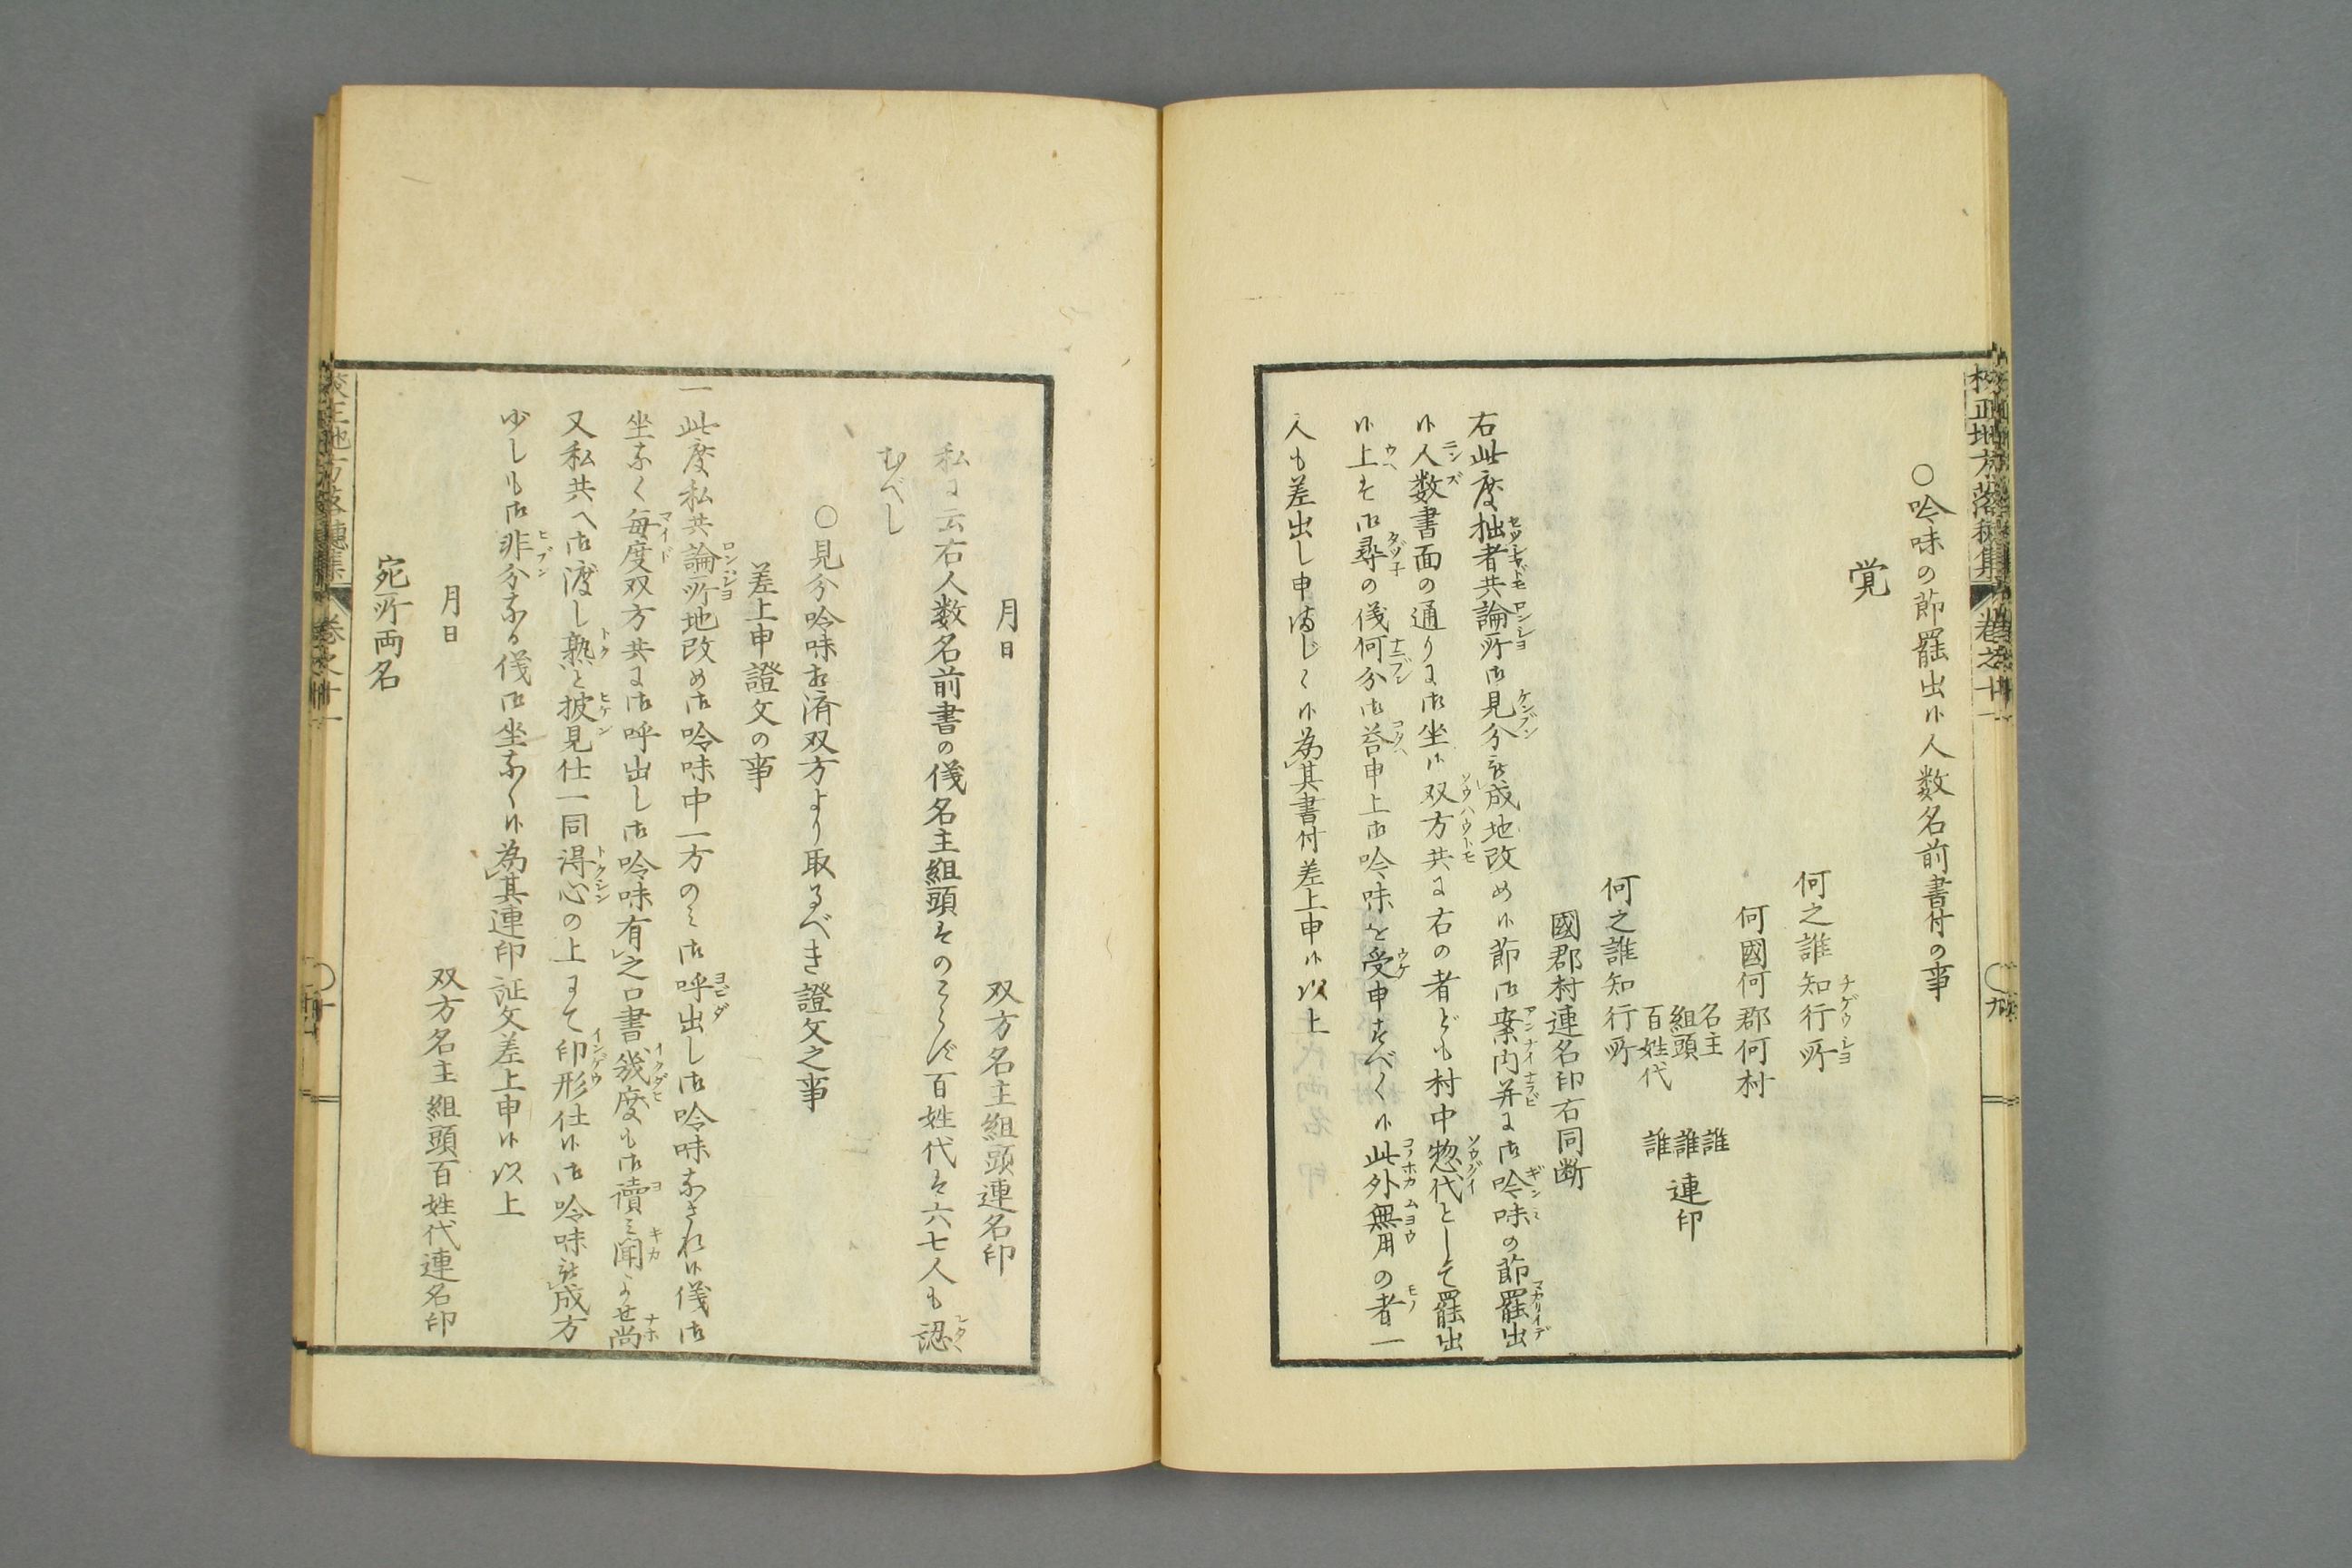 ○吟味の節罷出候人数名前書付の事
覚
何之誰知行所
チギウシヨ
何國何郡何村
名主 誰
組頭 誰 連印
百姓代 誰
何之誰知行所
國郡村連名印右同断
右此度拙者共論所御見分被成地改め候節御案内并に御吟味の節罷出
候人数書面の通りに御坐候双方共に右の者ども村中惣代として罷出
候上は御尋の儀何分御荅申上御吟味を受申すべく候此外無用の者一
人も差出し申まじく候為其書付差上申候以上
月日
双方名主組頭連名印
私に云右人数名前書の儀名主組頭はのこらず百姓代は六七人も認
むべし
○見分吟味相済双方より取るべき證文之事
差上申證文の事
一此度私共論所地改め御吟味中一方のミ御呼出し御吟味なされ候儀御
坐なく毎度双方共に御呼出し御吟味有之口書幾度も御讀ミ聞かせ尚
又私共へ御渡し熟と披見仕一同得心の上にて印形仕候御吟味被成方
少しも御非分なる儀御坐なく候為其連印証文差上申候以上
月日
双方名主組頭百姓代連名印
宛所両名
校正地方落穂集 巻之十一